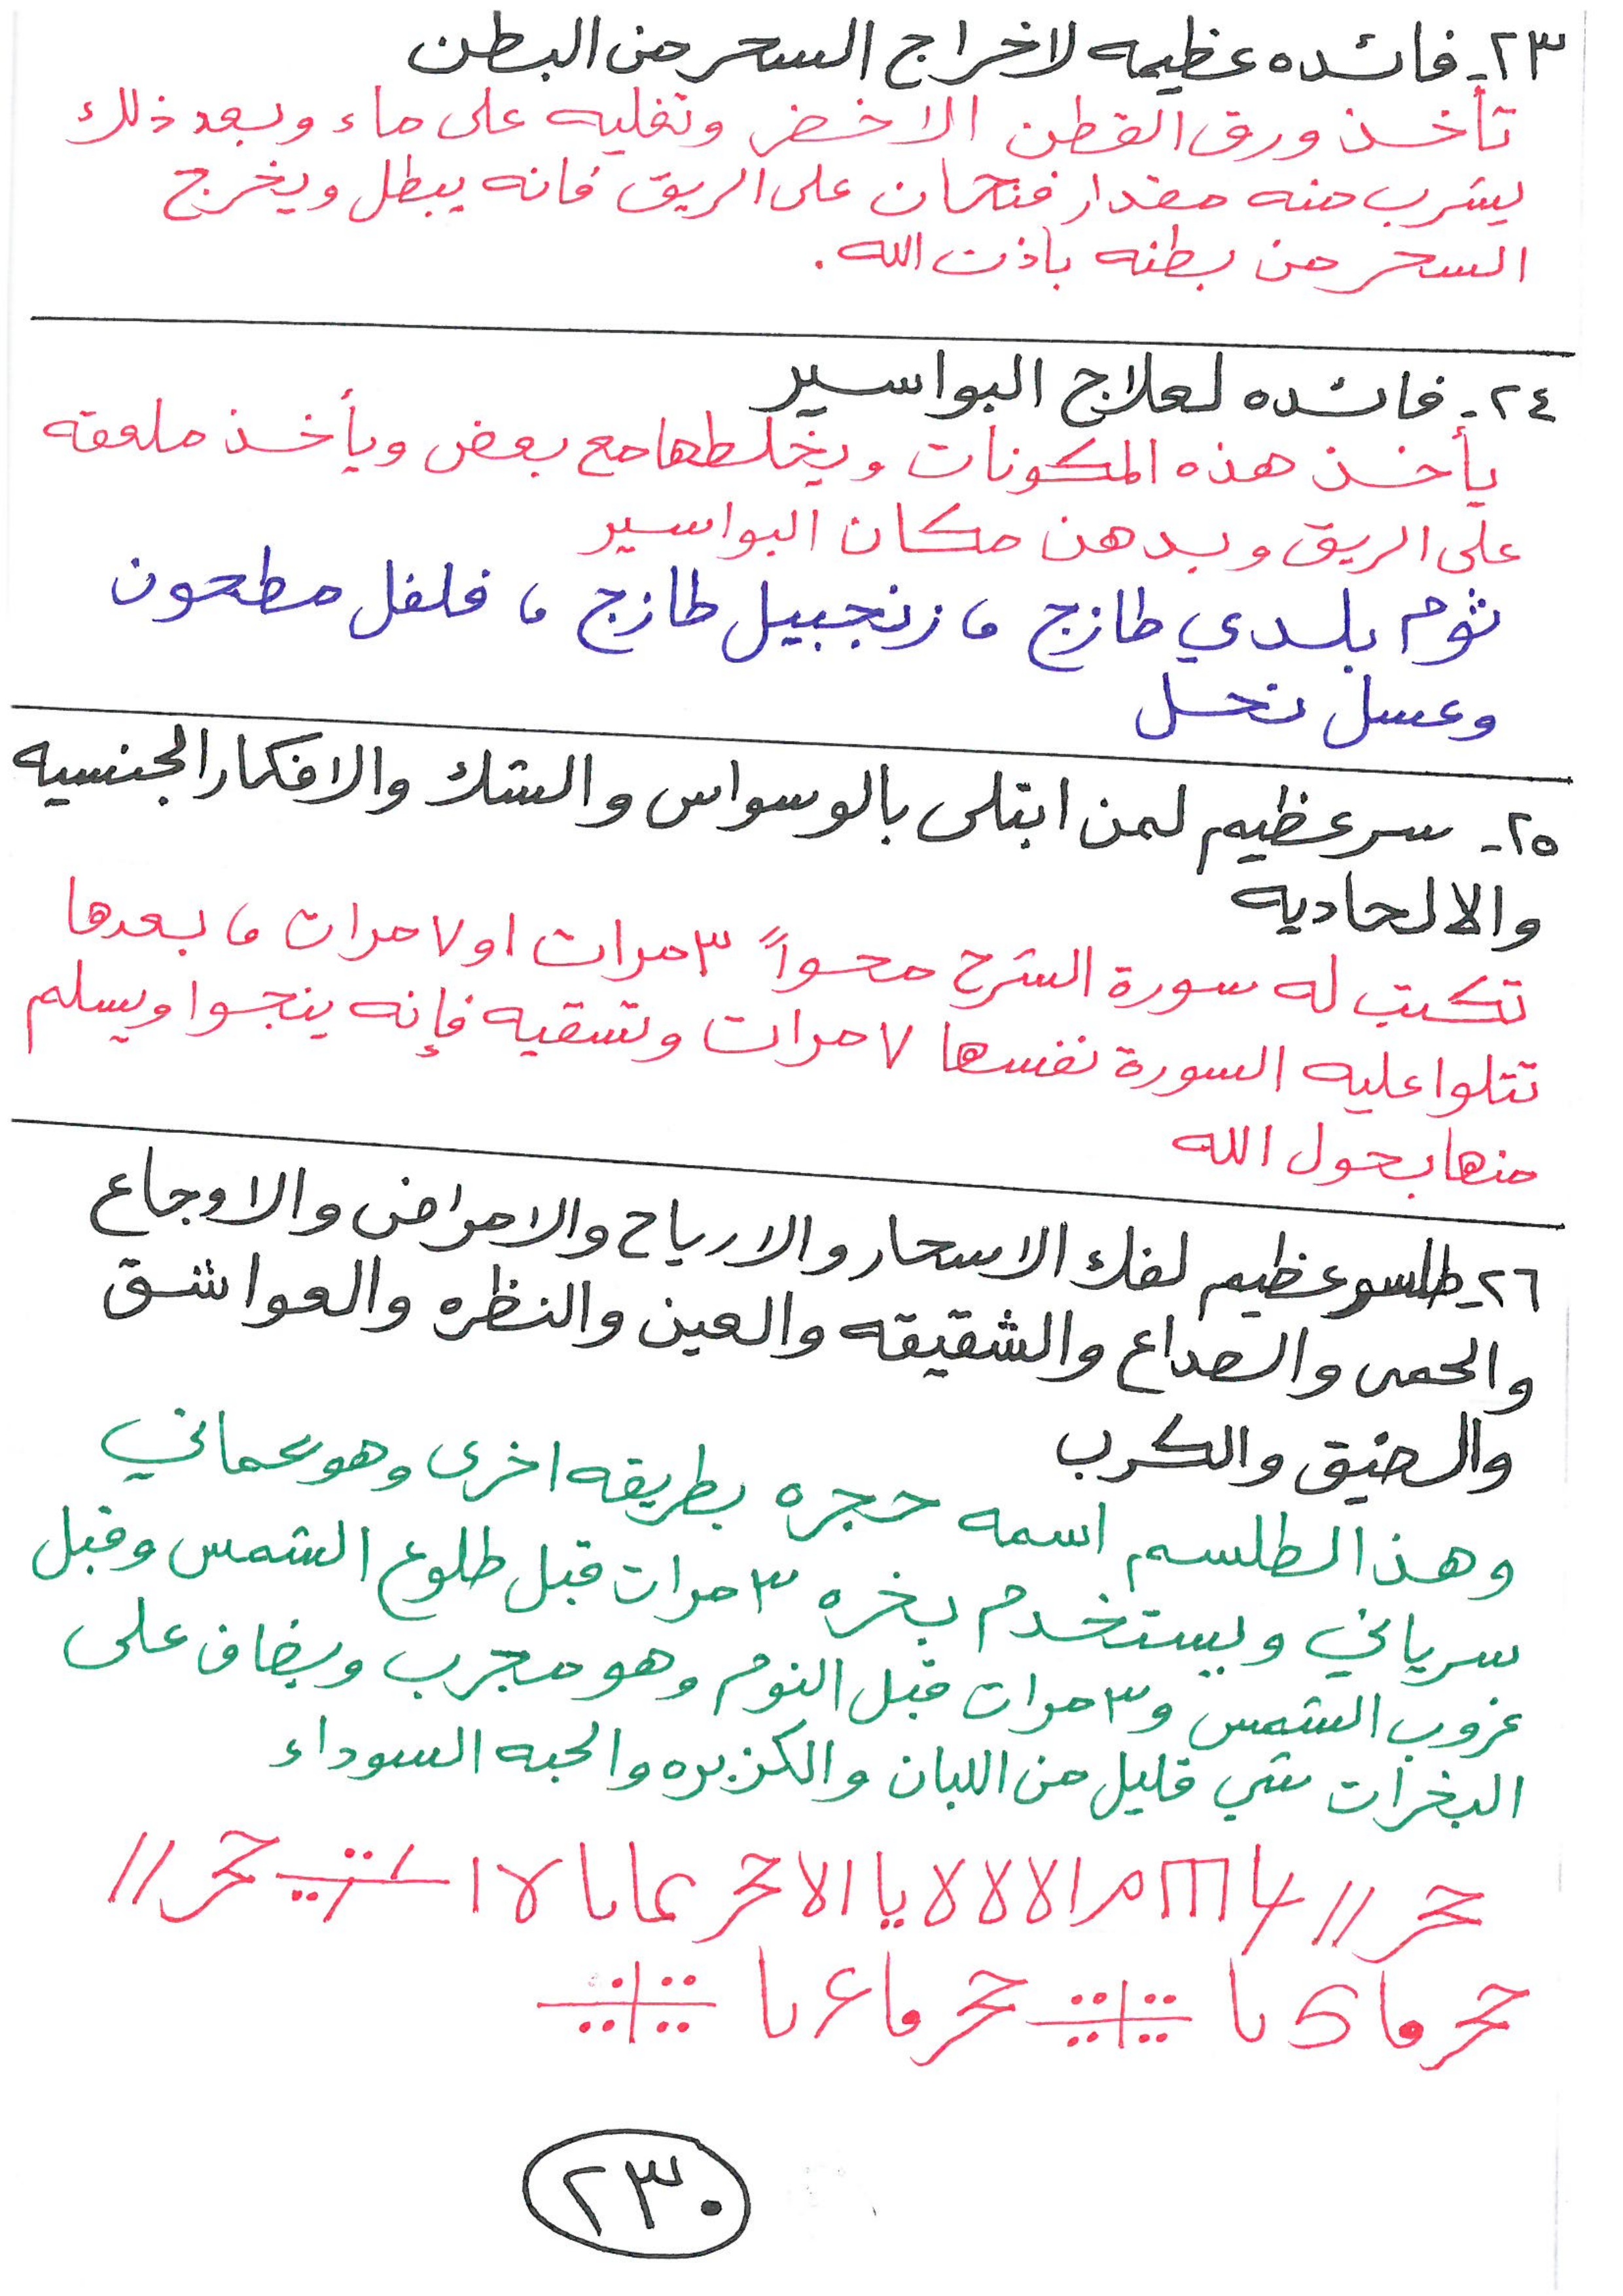 ٢٣- فائده عظيمه لاخراج السحر من البطن
تأخذ ورق القطن الاخضر وتغليه على ماء وبعد ذلك
يشرب منه مقدار فنجان على الريق فانه يبطل ويخرج
السحر من بطنه باذن الله .
٢٤- فائده لعلاج البواسير
يأخذ هذه المكونات ويخلطها مع بعض ويأخذ ملعقه
على الريق ويدهن مكان البواسير
ثوم بلدي طازج ، زنجبيل طازج ، فلفل مطحون
وعسل نحل
٢٥- سر عظيم لمن ابتلى بالوسواس والشك والافكار الجنسيه
والالحاديه
تكتب له سورة الشرح محواً ٣ مرات او ٧ مرات ، بعدها
تتلوا عليه السورة نفسها ٧ مرات وتسقيه فإنه ينجوا ويسلم
منها بحول الله
٢٦- طلسم عظيم لفك الاسحار والارياح والامراض والاوجاع
والحمى والصداع والشقيقه والعين والنظره والعواشق
والضيق والكرب
وهذا الطلسم اسمه حجره بطريقه اخرى وهو عماني
سرياني ويستخدم بخره ٣ مرات قبل طلوع الشمس وقبل
غروب الشمس و٣ مرات قبل النوم وهو مجرب ويضاف على
البخرات شي قليل من اللبان والكزبره والحبه السوداء
٢٣٠